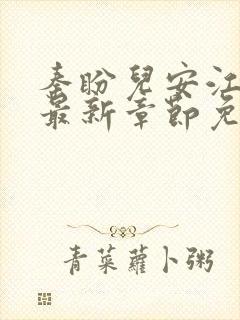 秦盼兒安江
最新章節免
青菜蘿卜粥